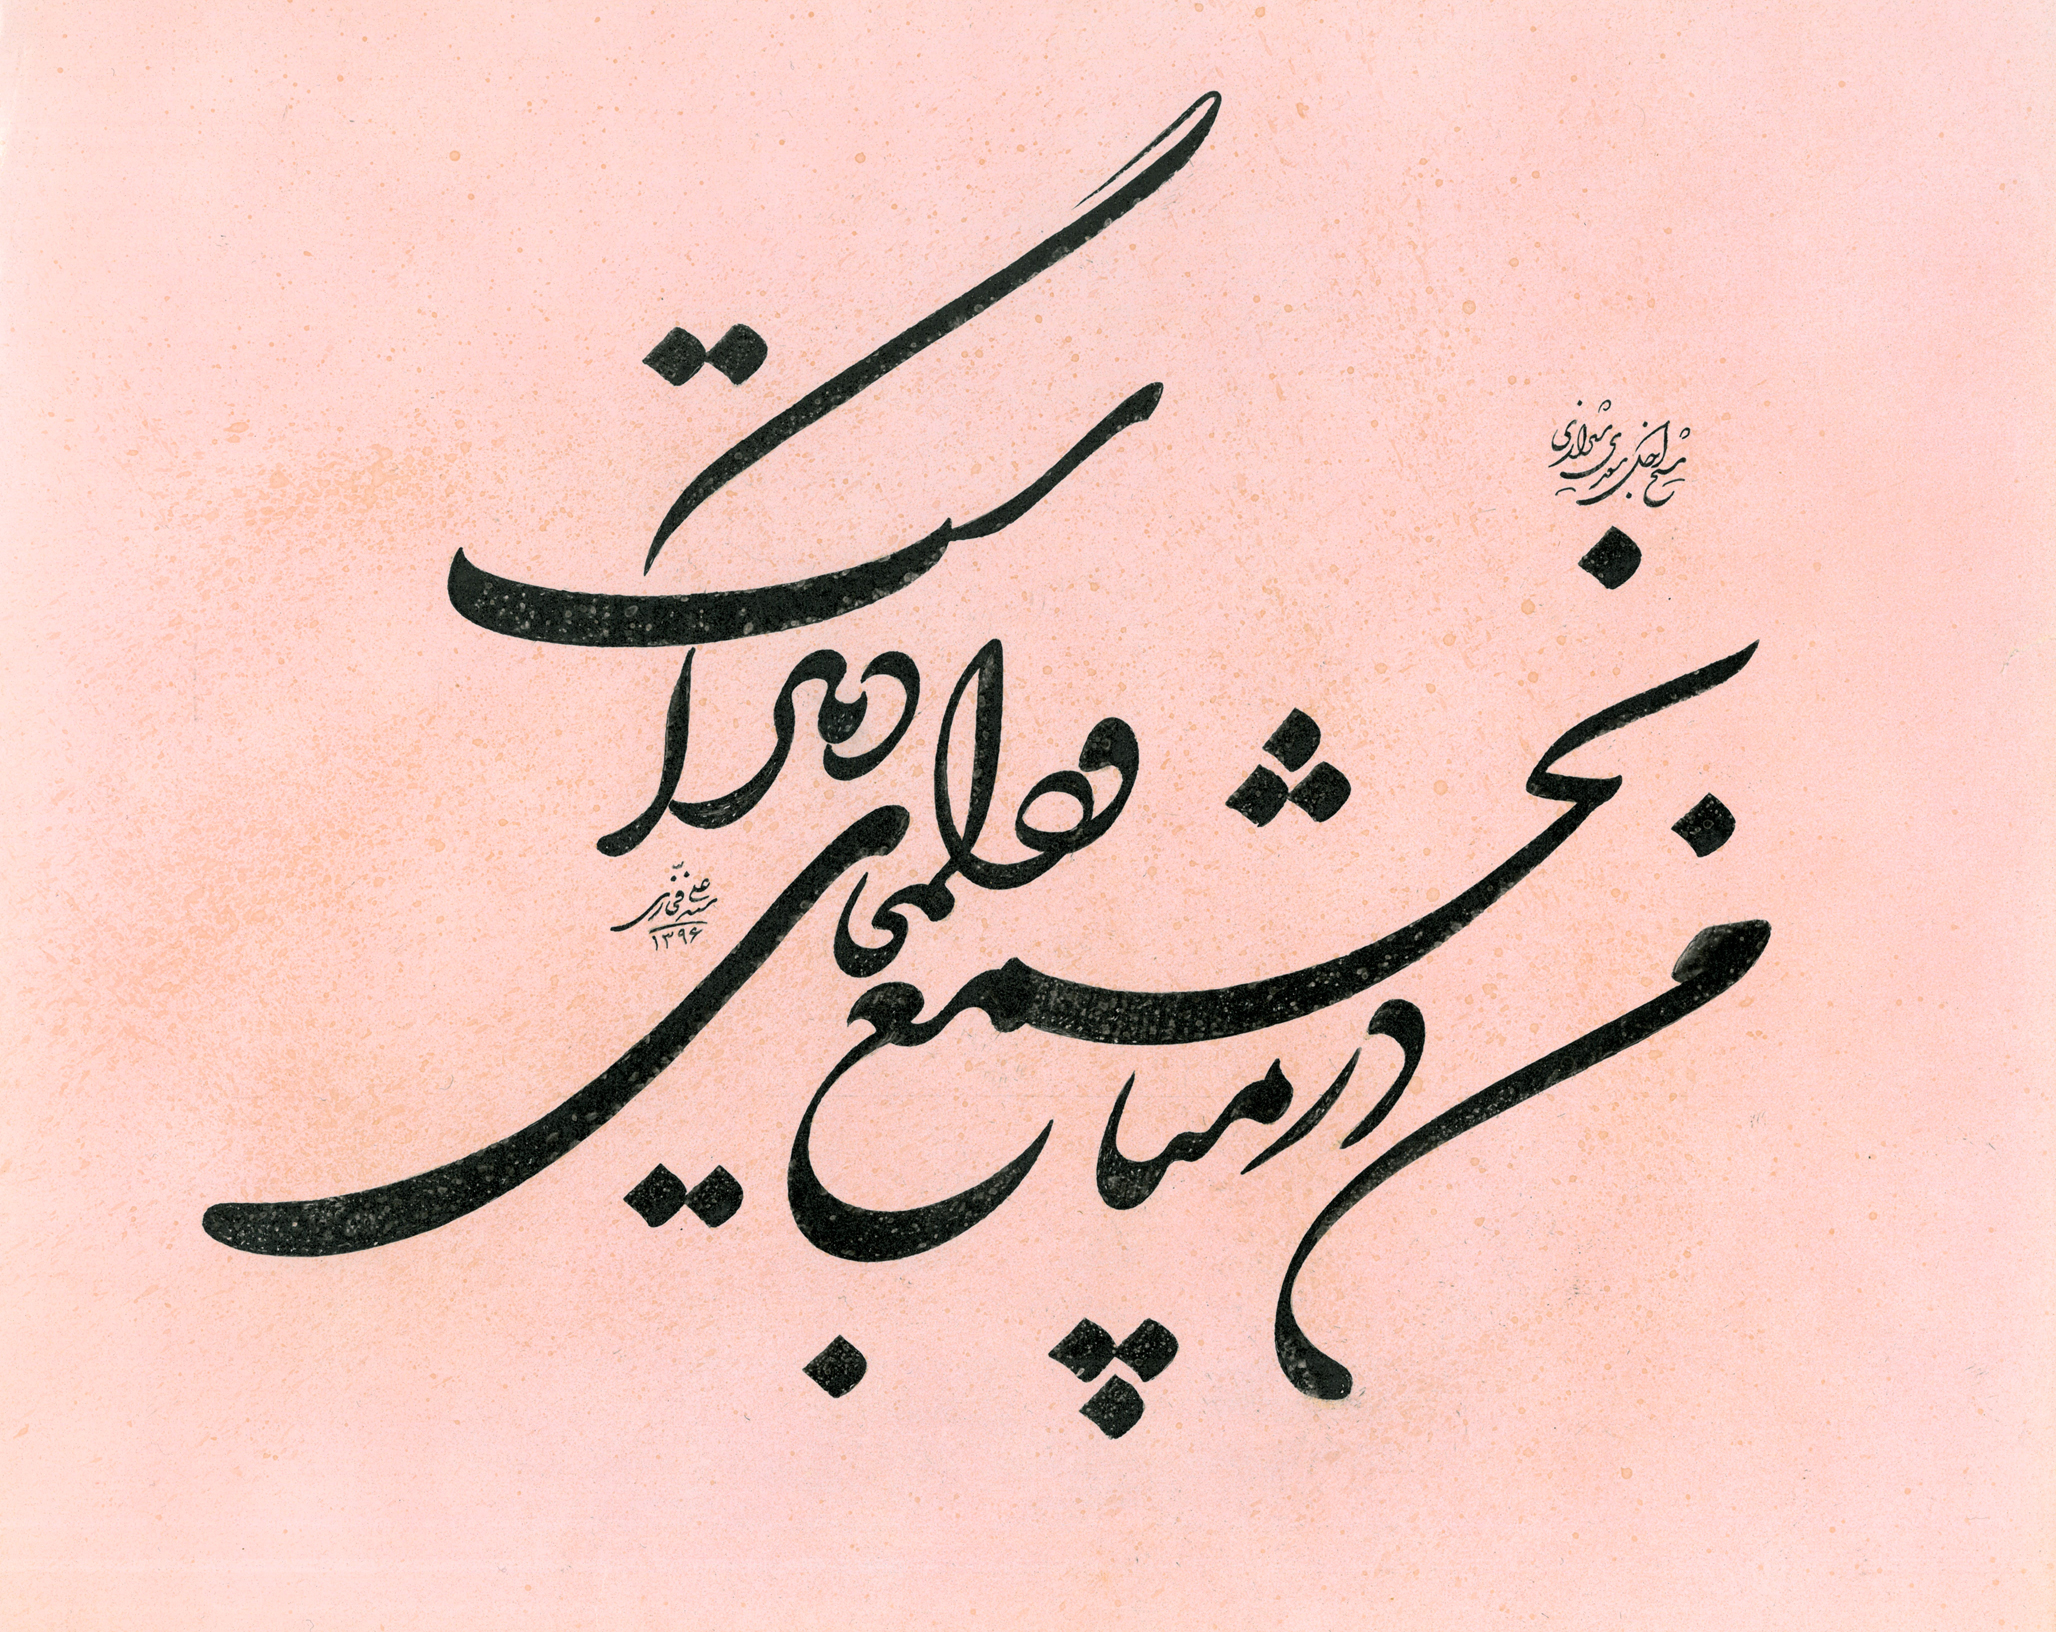 شیخ اجل سعدی شیرازی
من در میان جمع و دلم جای دیگر است
۱۳۹۶